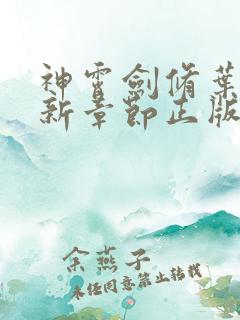 神霄劍脩葉
新章節正版
余燕子
未经同意禁止转载